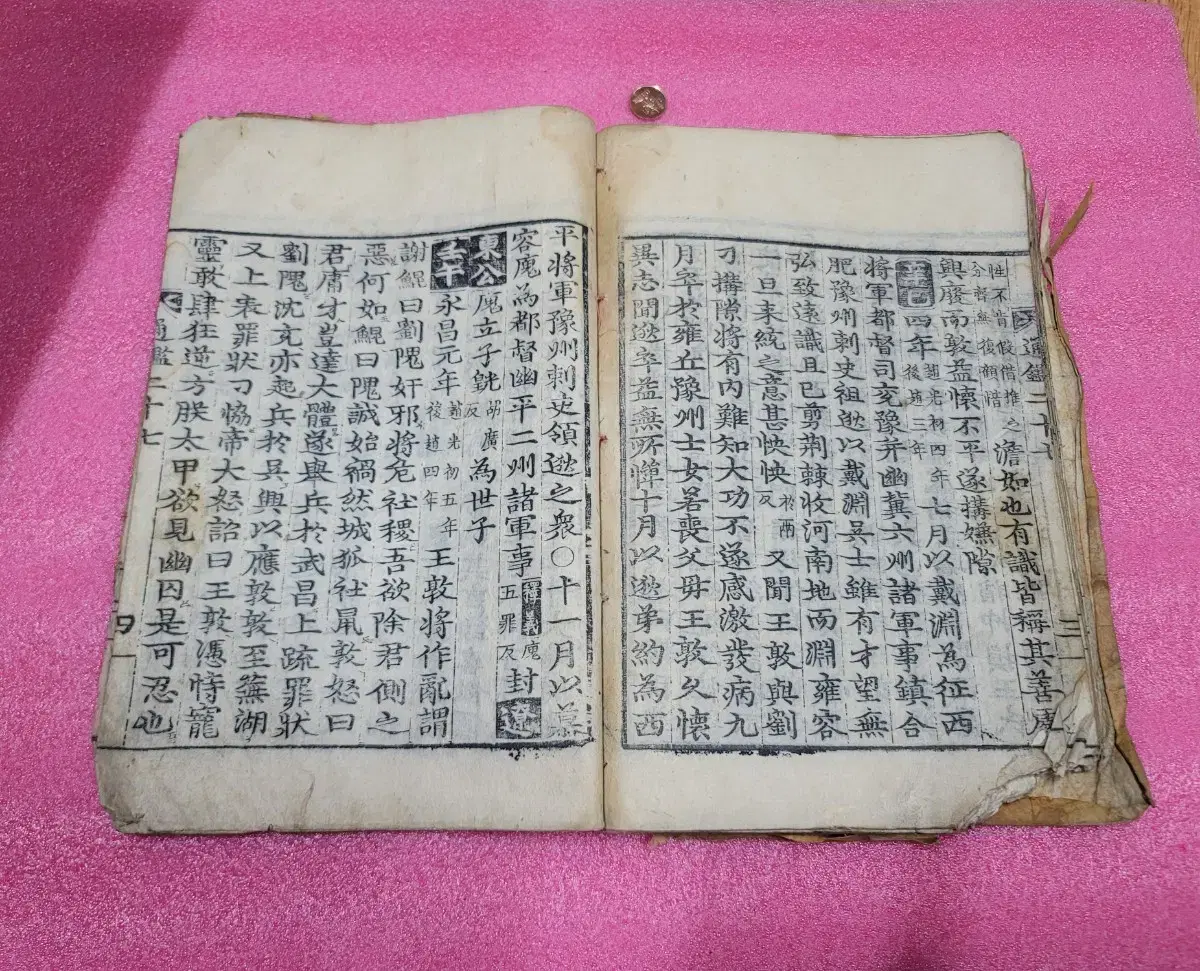 通鑑二十七 三
澹如也有識皆稱其善處
興廢而敦益懷不平遂搆嫌隙
四年趙光初四年後趙三年七月以戴淵為征西
將軍都督司兗豫并幽冀六州諸軍事鎮合
肥豫州刺史祖逖以戴淵吳士雖有才望無
弘致遠識且已剪荊棘收河南地而淵雍容
一旦来統之意甚怏怏於兩反又聞王敦與劉
刁搆隙將有內難知大功不遂感激發病九
月卒於雍丘豫州士女若喪父母王敦久懷
異志聞逖卒益無所憚十月以逖弟約為西
平將軍豫州刺史領逖之衆○十一月以慕
容廆為都督幽平二州諸軍事釋義廆五罪反封遼
東公廆立子皝胡廣反為世子
壬午永昌元年趙光初五年後趙四年王敦將作亂謂
謝鯤曰劉隗奸邪將危社稷吾欲除君側之
惡何如鯤曰隗誠始禍然城狐社鼠敦怒曰
君庸才豈達大體遂舉兵於武昌上疏罪狀
劉隗沈充亦起兵於吳興以應敦敦至蕪湖
又上表罪狀刁協帝大怒詔曰王敦憑恃寵
靈敢肆狂逆方朕太甲欲見幽囚是可忍也
通鑑二十七 四一